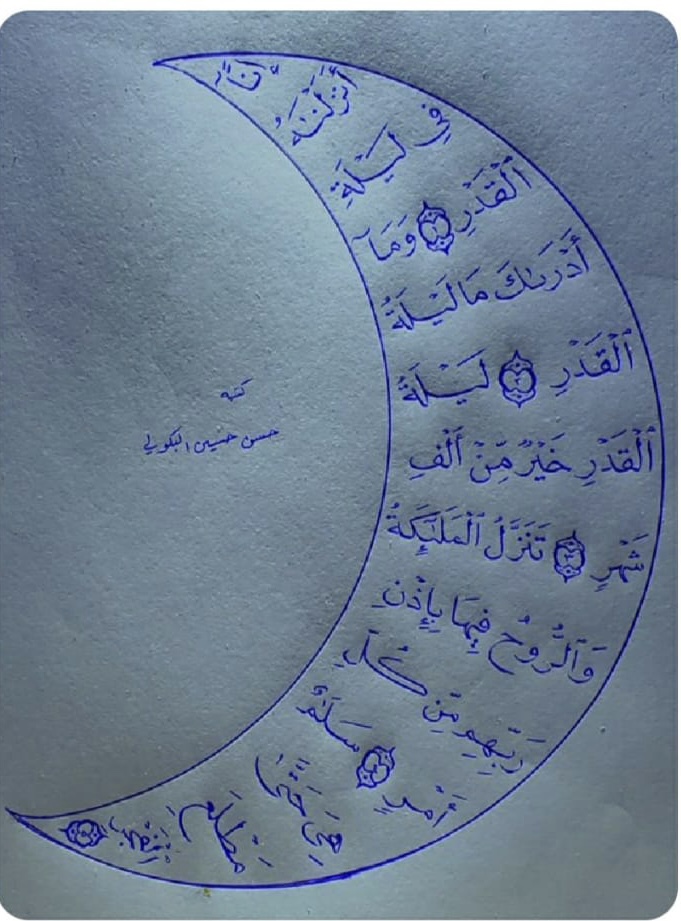 إِنَّآ
أَنزَلْنَٰهُ
فِي لَيْلَةِ
ٱلْقَدْرِ ۝١ وَمَآ
أَدْرَىٰكَ مَا لَيْلَةُ
ٱلْقَدْرِ ۝٢ لَيْلَةُ
ٱلْقَدْرِ خَيْرٌ مِّنْ أَلْفِ
شَهْرٍ ۝٣ تَنَزَّلُ ٱلْمَلَٰٓئِكَةُ
وَٱلرُّوحُ فِيهَا بِإِذْنِ
رَبِّهِم مِّن كُلِّ
أَمْرٍ ۝٤ سَلَٰمٌ
هِيَ حَتَّىٰ
مَطْلَعِ
ٱلْفَجْرِ ۝٥
كتبه
حسن حسين البكولي